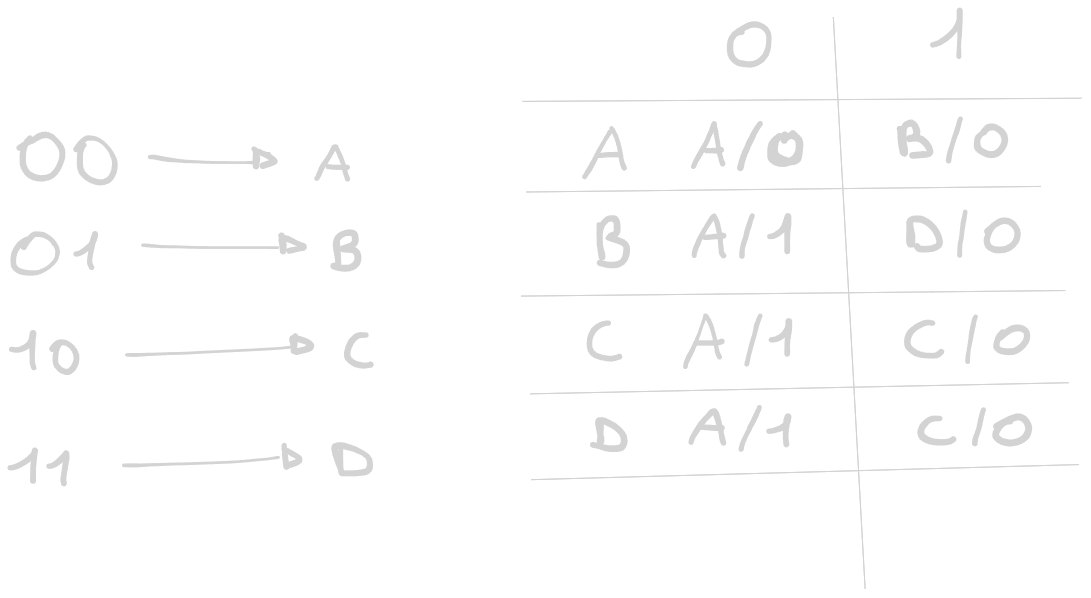 0 1
00 → A
01 → B
10 → C
11 → D
A A/0 B/0
B A/1 D/0
C A/1 C/0
D A/1 C/0